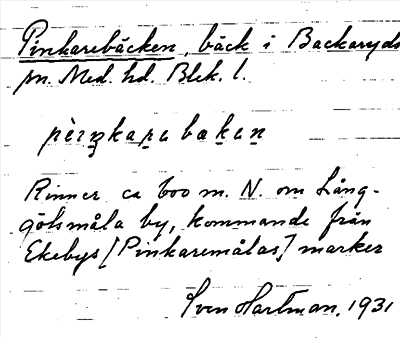 Pinkarebäcken, bäck i Backaryds
sn. Med. hd. Blek. l.
Rinner ca 600 m. N. om Lång-
gölsmåla by, kommande från
Ekebys [Pinkaremålas] marker
Sven Hartman. 1931